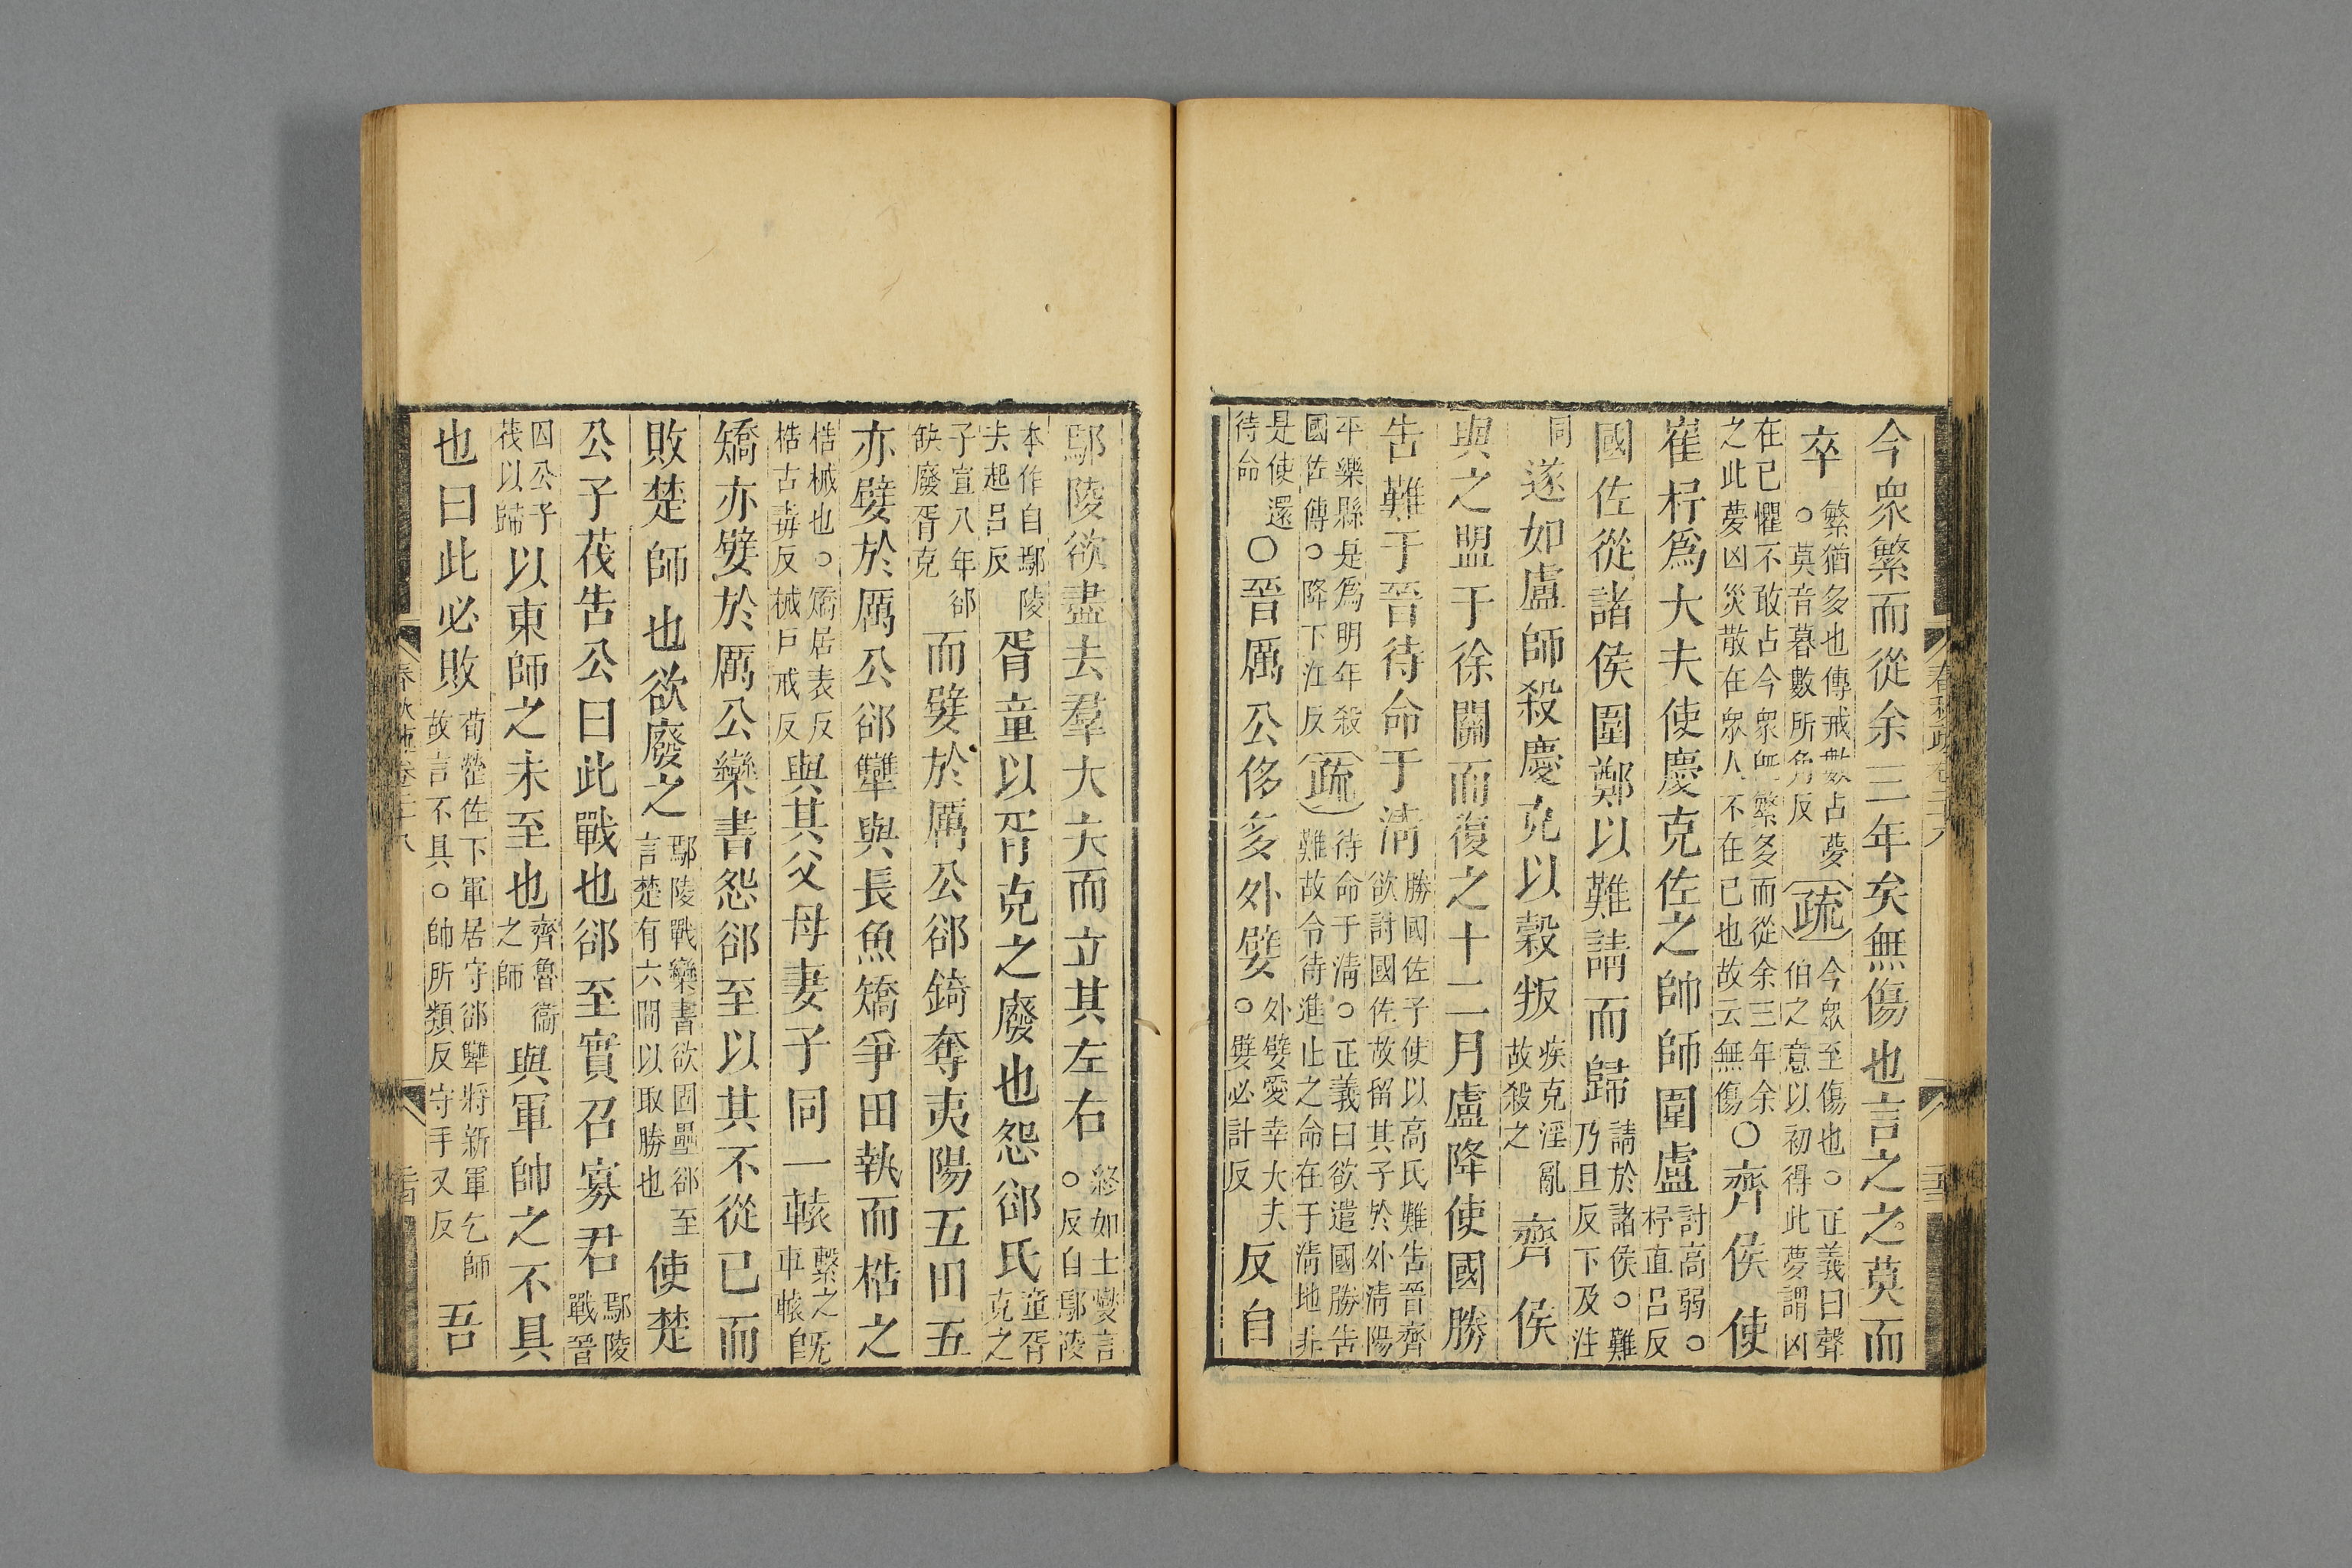 今眾繁而從余三年矣無傷也言之之莫而
卒繁猶多也傳戒數占夢○莫音暮數所角反疏今眾至傷也○正義曰聲伯之意以初得此夢謂凶
在已懼不敢占今眾既繁多而從余三年余之此夢凶災散在眾人不在已也故云無傷○齊侯使
崔杼爲大夫使慶克佐之帥師圍盧討高弱○杼直呂反
國佐從諸侯圍鄭以難請而歸請於諸侯○難乃旦反下及注
同遂如盧師殺慶克以穀叛疾克淫亂故殺之齊侯
與之盟于徐關而復之十二月盧降使國勝
告難于晉待命于清勝國佐子使以高氏難告晉齊欲討國佐故留其子於外清陽
平樂縣是爲明年殺國佐傳○降下江反疏待命于清○正義曰欲遣國勝告難故令待進止之命在于清地非
是使還待命○晉厲公侈多外嬖外嬖愛幸大夫○嬖必計反反自
鄢陵欲盡去羣大夫而立其左右終如士燮言○反自鄢陵
本作自鄢陵去起呂反胥童以胥克之廢也怨郤氏童胥克之
子宣八年郤缺廢胥克而嬖於厲公郤錡奪夷陽五田五
亦嬖於厲公郤犫與長魚矯爭田執而梏之
梏械也○矯居表反梏古毒反械戸戒反與其父母妻子同一轅繫之車轅既
矯亦嬖於厲公欒書怨郤至以其不從已而
敗楚師也欲廢之鄢陵戰欒書欲固壘郤至言楚有六間以取勝也使楚
公子茷告公曰此戰也郤至實召寡君鄢陵戰晉
囚公子茷以歸以東師之未至也齊魯衞之師與軍帥之不具
也曰此必敗荀罃佐下軍居守郤犫將新軍乞師故言不具○帥所類反守手又反吾